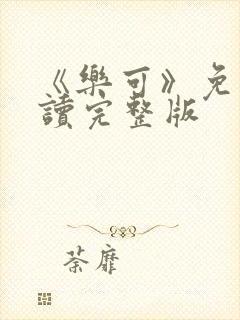 《樂可》免
讀完整版
荼靡